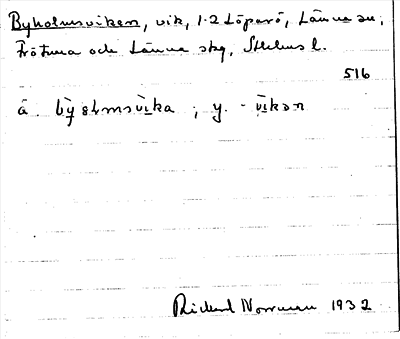 Byholmsviken, vik, 1.2 Löparö, Länna sn,
Frötuna och Länna skg, Sthlms l.
516
ä. bỳəlmsv̀ika ; y. -v̀ikən
Rickard Norrman 1932